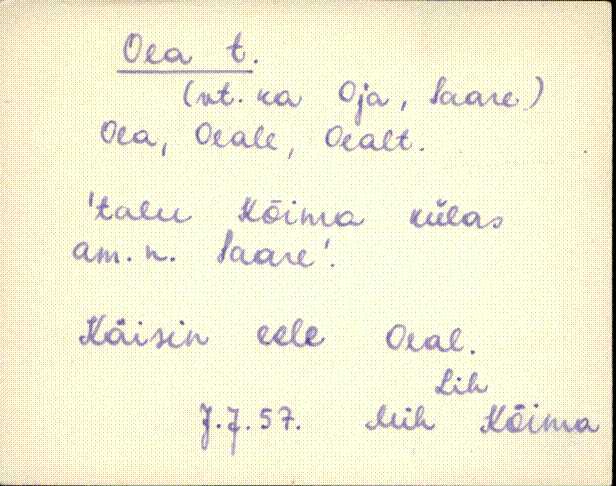 Oea t.
(vt. ka Oja, Saare)
Oea, Oeale, Oealt.
'talu Kõima külas
am. n. Saare'.
Käisin eele Oeal.
Lih
J.J. 57. Mih Kõima